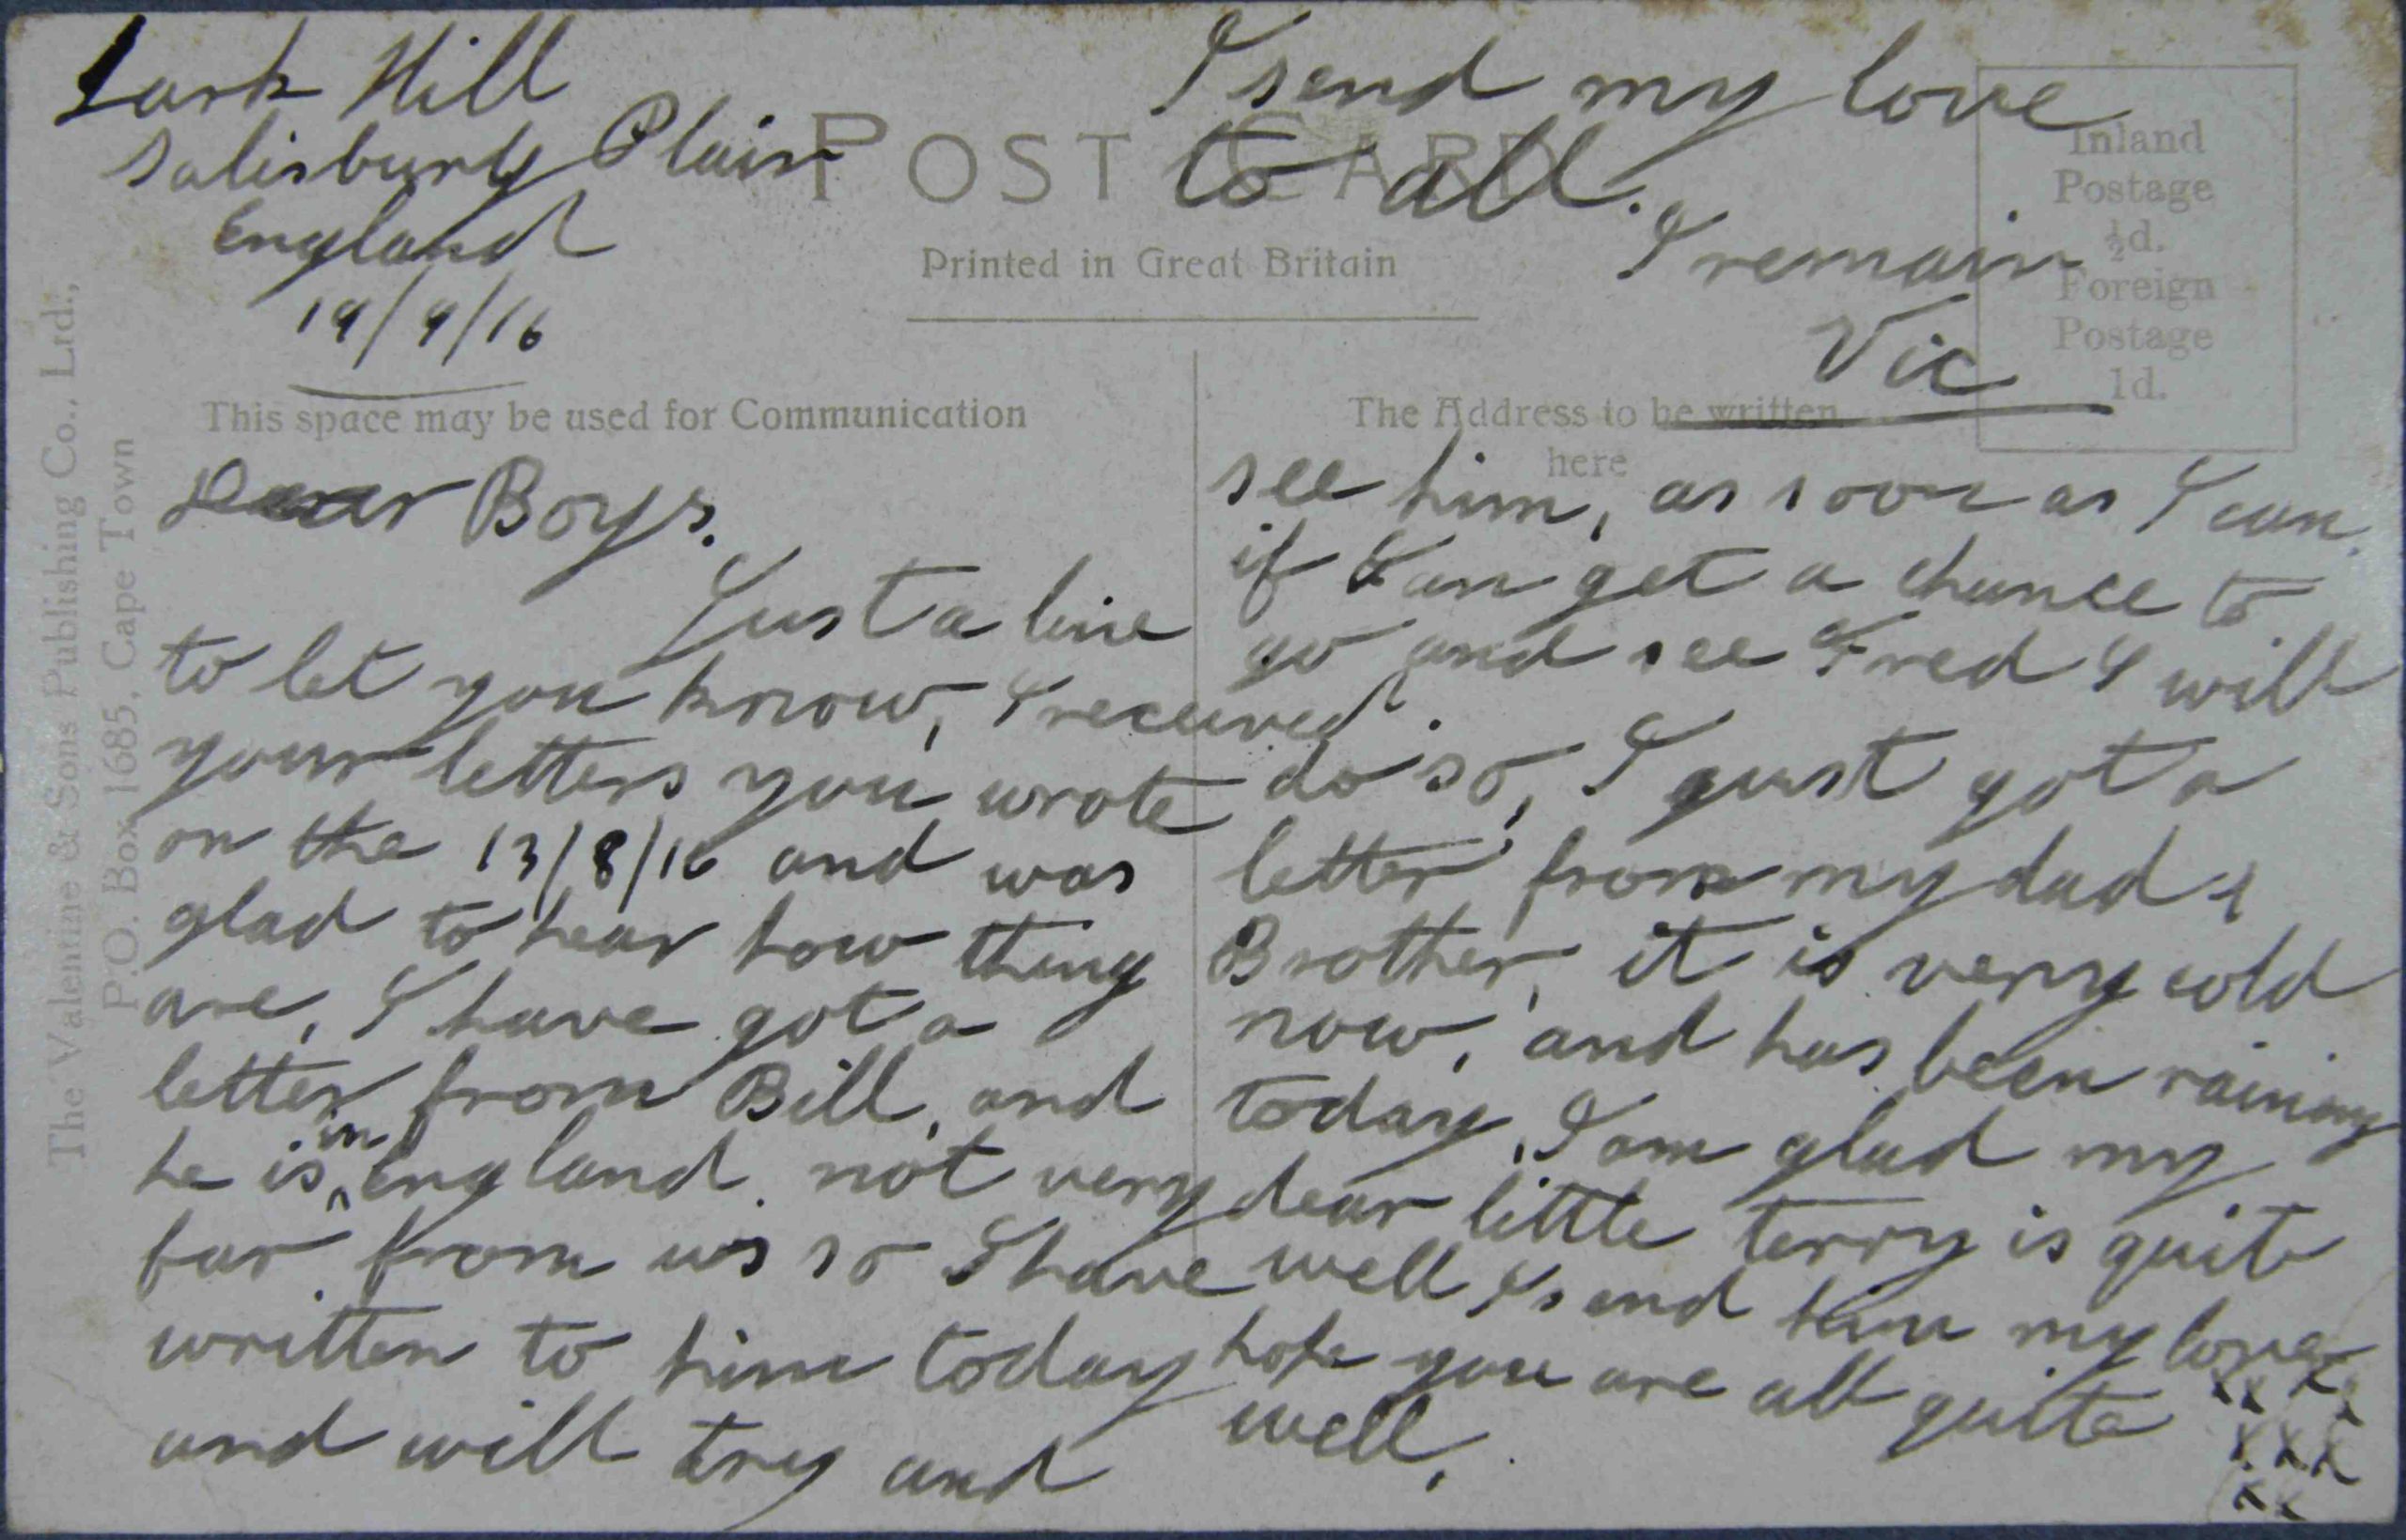 Lark Hill
Salisbury Plain
England
19/9/16
POST CARD
Printed in Great Britain
Inland
Postage
½d.
Foreign
Postage
1d.
The Valentine & Sons Publishing Co., Ltd.,
P.O. Box 1685, Cape Town
This space may be used for Communication
Dear Boys.
Just a line
to let you know, I received
your letters you wrote
on the 13/8/16 and was
glad to hear how thing
are, I have got a
letter from Bill, and
he is in England. not very
far from us so I have
written to him today
and will try and
The Address to be written
here
see him, as soon as I can.
if I can get a chance to
go and see Fred I will
do so, I just got a
letter from my dad &
Brother, it is very cold
now, and has been raining
today, I am glad my
dear little terry is quite
well I send him my love
hope you are all quite
well,
xx x x
x x x
x x
I send my love
to all.
I remain
Vic